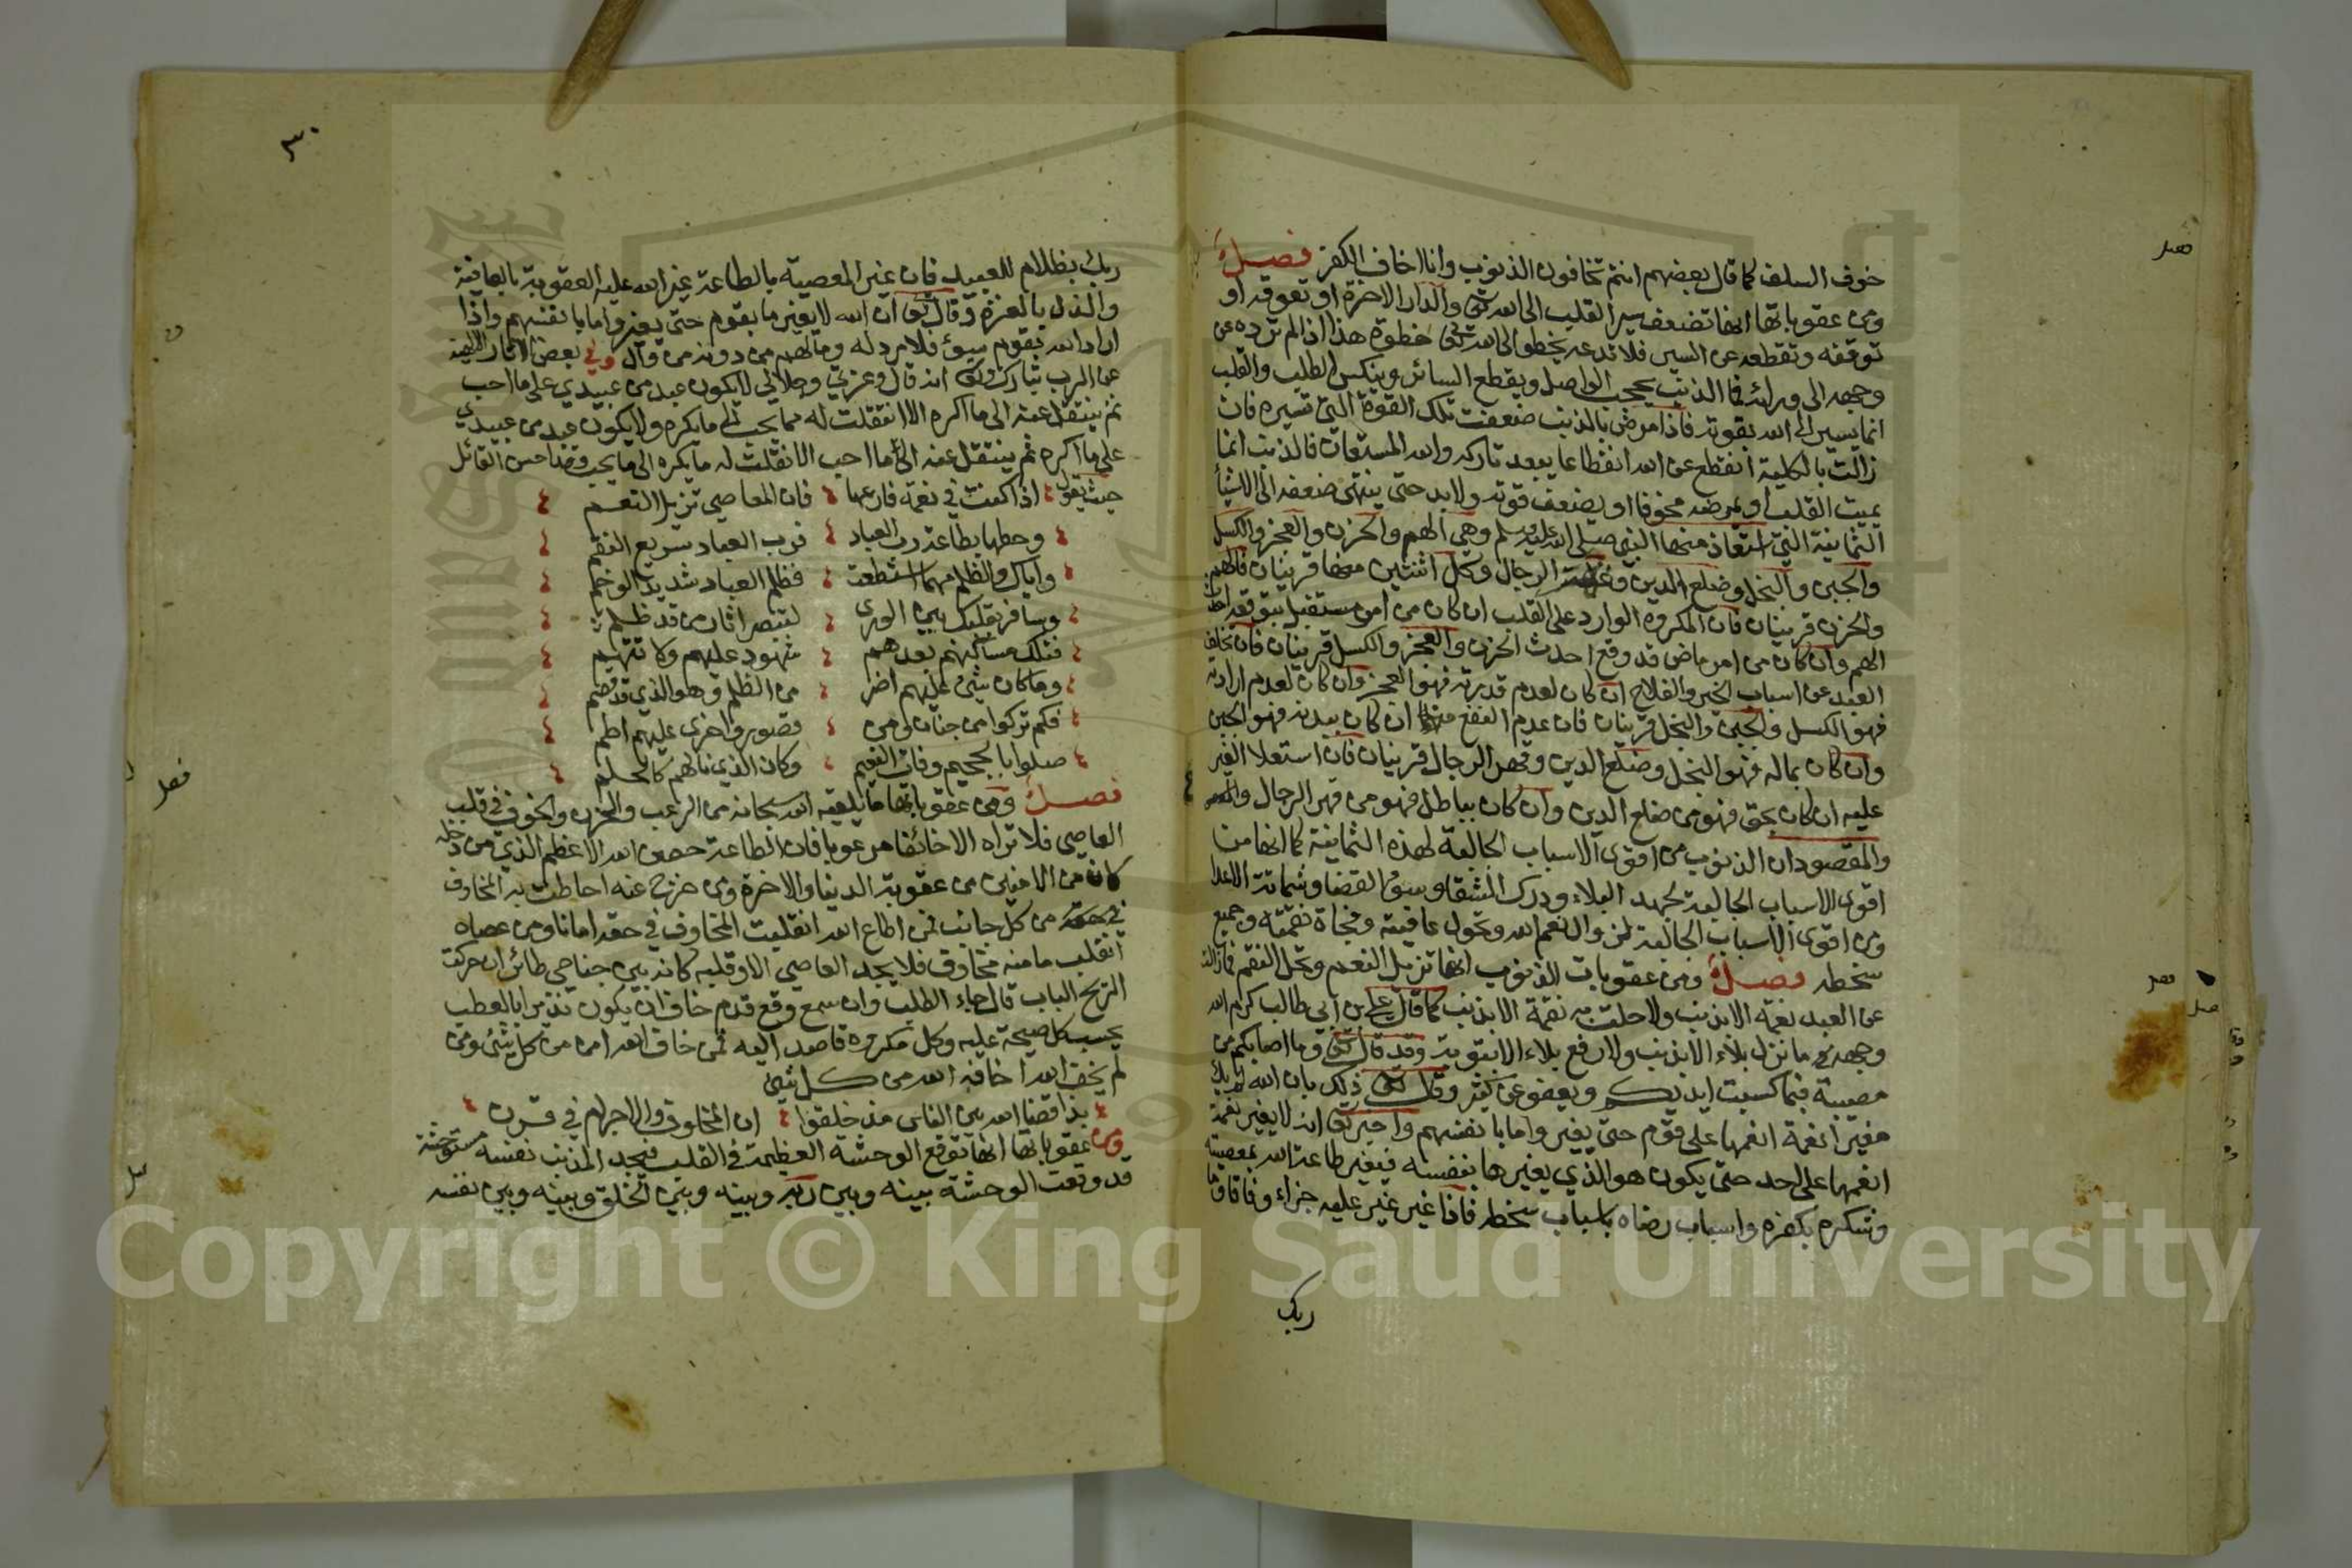 خوف السلف كما قال بعضهم انتم تخافون الذنوب وانا اخاف الكفر فصل
ومن عقوباتها انها تضعف سير القلب الى الله تعالى والدار الاخرة او تعوقه او
توقفه وتقطعه عن السير فلا تدعه يخطو الى الله تعالى خطوة هذا اذا لم ترده عن
وجهه الى ورائه فا الذنب يحجب الواصل ويقطع السائر وينكس الطلب والقلب
انما يسير الى الله بقوته فاذا مرض بالذنب ضعفت تلك القوة التي تسيره فان
زالت بالكلية انقطع عن الله انقطاعا يبعد تداركه والله المستعان فالذنب انما
يميت القلب او يمرضه مخوفا او يضعف قوته ولا بد حتى ينتهي ضعفه الى الاشيأ
الثمانية التي استعاذ منها النبي صلى الله عليه وسلم وهي الهم والحزن والعجز والكسل
والجبن والبخل وضلع الدين وغلبة الرجال وكل اثنتين منها قرينان فالهم
والحزن قرينان فان المكروه الوارد على القلب ان كان من امر مستقبل يتوقعه احدث
الهم وان كان من امر ماض قد وقع احدث الحزن والعجز والكسل قرينان فان تخلف
العبد عن اسباب الخير والفلاح ان كان لعدم قدرته فهو العجز وان كان لعدم ارادته
فهو الكسل والجبن والبخل قرينان فان عدم النفع منه ان كان ببدنه فهو الجبن
وان كان بماله فهو البخل وضلع الدين وقهر الرجال قرينان فان استعلا الغير
عليه ان كان بحق فهو من ضلع الدين وان كان بباطل فهو من قهر الرجال
والمقصود ان الذنوب من اقوى الاسباب الجالبة لهذه الثمانية كما انها من
اقوى الاسباب الجالبة لجهد البلاء ودرك الشقا وسوء القضا وشماتة الاعدا
ومن اقوى الاسباب الجالبة لزوال نعم الله وتحول عافيته وفجاة نقمته وجميع
سخطه فصل ومن عقوبات الذنوب انها تزيل النعم وتحل النقم فما زالت
عن العبد نعمة الا بذنب ولا حلت به نقمة الا بذنب كما قال علي بن ابي طالب كرم الله
وجهه ما نزل بلاء الا بذنب ولا رفع بلاء الا بتوبة وقد قال تعالى وما اصابكم من
مصيبة فبما كسبت ايديكم ويعفو عن كثير وقال تعالى ذلك بان الله لم يك
مغيرا نعمة انعمها على قوم حتى يغيروا ما بانفسهم واخبر تعالى انه لا يغير نعمة
انعمها على احد حتى يكون هو الذي يغيرها بنفسه فيغير طاعة الله بمعصيته
وشكره بكفره واسباب رضاه باسباب سخطه فاذا غير غير عليه جزاء وفاقا وما
ربك
فصل
فصل
٣٠
ربك بظلام للعبيد فان غير المعصية بالطاعة غير الله عليه العقوبة بالعافية
والذل بالعز وقال تعالى ان الله لا يغير ما بقوم حتى يغيروا ما بانفسهم واذا
اراد الله بقوم سوء فلا مرد له وما لهم من دونه من وال وفي بعض الاثار الالهية
عن الرب تبارك وتعالى انه قال وعزتي وجلالي لا يكون عبد من عبيدي على ما احب
ثم ينتقل عنه الى ما اكره الا انتقلت له مما يحب الى ما يكره ولا يكون عبد من عبيدي
على ما اكره ثم ينتقل عنه الى ما احب الا نقلت له ما يكره الى ما يحب وقد احسن القائل
حيث يقول اذا كنت في نعمة فارعها فان المعاصي تزيل النعم
وحطها بطاعة رب العباد فرب العباد سريع النقم
واياك والظلم مهما استطعت فظلم العباد شديد الوخم
وسافر بقلبك بين الورى لتبصر اثار من قد ظلم
فتلك مساكنهم بعدهم شهود عليهم ولا تتهم
وما كان شيء عليهم اضر من الظلم وهو الذي قد قصم
فكم تركوا من جنان ومن قصور واخرى عليهم اطم
صلوا بالجحيم وفات النعيم وكان الذي نالهم كالحلم
فصل ومن عقوباتها ما يلقيه الله سبحانه من الرعب والحزن والخوف في قلب
العاصي فلا تراه الا خائفا مرعوبا فان الطاعة حصن الله الاعظم الذي من دخله
كان من الامنين من عقوبة الدينا والاخرة ومن خرج عنه احاطت به المخاوف
من كل جانب فمن اطاع الله انقلبت المخاوف في حقه امانا ومن عصاه
انقلب مامنه مخاوف فلا يجد العاصي الا وقلبه كانه بين جناحي طائر ان حركت
الريح الباب قال جاء الطلب وان سمع وقع قدم خاف ان يكون نذيرا بالعطب
يحسب كل صيحة عليه وكل مكروه قاصد اليه فمن خاف الله امن من كل شيء ومن
لم يخف الله اخافه الله من كل شيء
بذا قضا الله بين الناس مذ خلقوا ان المخاوف والاجرام في قرن
ومن عقوباتها انها توقع الوحشة العظيمة في القلب فيجد المذنب نفسه مستوحشة
قد وقعت الوحشة بينه وبين ربه وبينه وبين الخلق وبينه وبين نفسه
فصل
Copyright © King Saud University